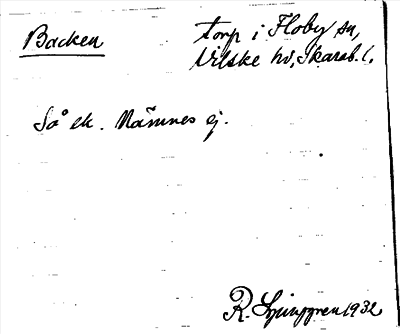 Backen
torp i Floby sn,
Vilske hd, Skarab. l.
Så ek. Nämnes ej.
R. Ljunggren 1932